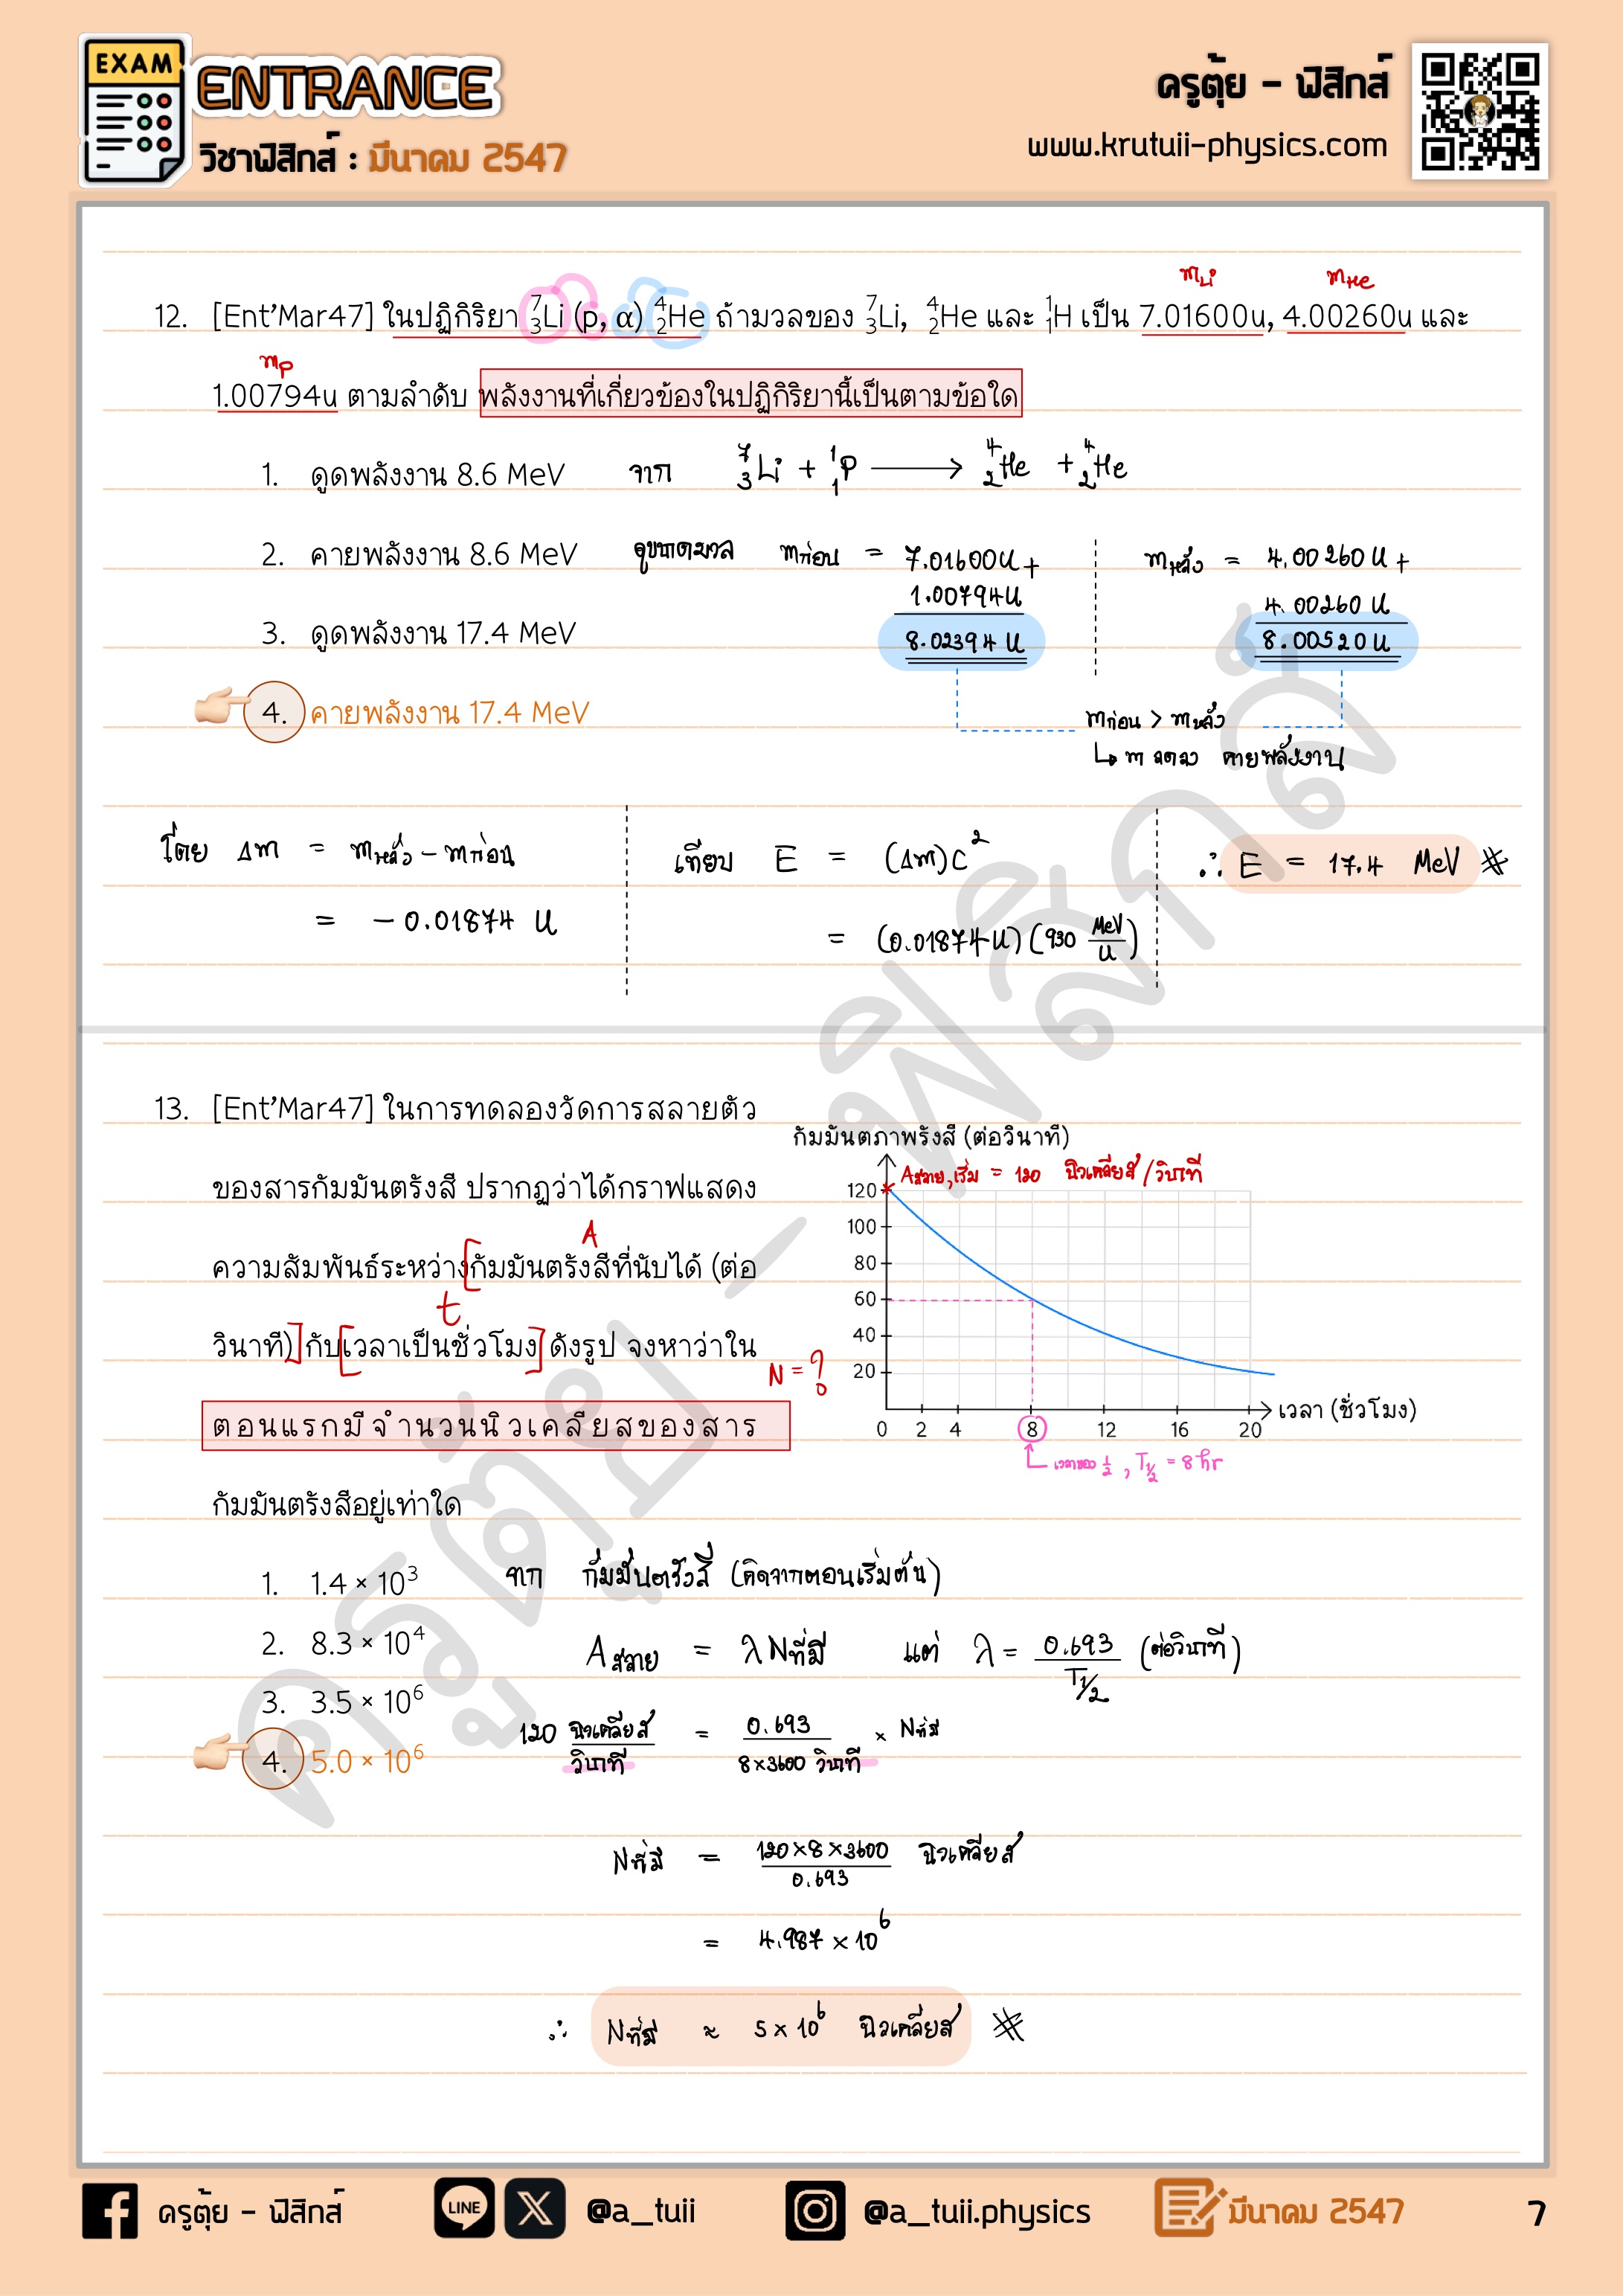 EXAM
ENTRANCE
วิชาฟิสิกส์ : มีนาคม 2547
ครูตุ้ย - ฟิสิกส์
www.krutuii-physics.com
12. [Ent'Mar47] ในปฏิกิริยา ⁷₃Li (p, α) ⁴₂He ถ้ามวลของ ⁷₃Li, ⁴₂He และ ¹₁H เป็น 7.01600u, 4.00260u และ
m_Li m_He
m_p
1.00794u ตามลำดับ พลังงานที่เกี่ยวข้องในปฏิกิริยานี้เป็นตามข้อใด
1. ดูดพลังงาน 8.6 MeV
จาก ⁷₃Li + ¹₁P ⟶ ⁴₂He + ⁴₂He
2. คายพลังงาน 8.6 MeV
ดูขนาดมวล m ก่อน = 7.01600u +
1.00794u
8.02394 u
m หลัง = 4.00260 u +
4.00260 u
8.00520 u
3. ดูดพลังงาน 17.4 MeV
4. คายพลังงาน 17.4 MeV
m ก่อน > m หลัง
↳ m ลดลง คายพลังงาน
โดย Δm = m หลัง - m ก่อน
= -0.01874 u
เทียบ E = (Δm)c²
= (0.01874 u)(930 MeV/u)
∴ E = 17.4 MeV ※
13. [Ent'Mar47] ในการทดลองวัดการสลายตัว
ของสารกัมมันตรังสี ปรากฏว่าได้กราฟแสดง
A
ความสัมพันธ์ระหว่างกัมมันตรังสีที่นับได้ (ต่อ
t
วินาที) กับเวลาเป็นชั่วโมง ดังรูป จงหาว่าใน
N = ?
ตอนแรกมีจำนวนนิวเคลียสของสาร
กัมมันตรังสีอยู่เท่าใด
กัมมันตภาพรังสี (ต่อวินาที)
A สลาย, เริ่ม = 120 นิวเคลียส์/วินาที
120
100
80
60
40
20
0 2 4 8 12 16 20
เวลา (ชั่วโมง)
เวลาของ ½, T½ = 8 hr
1. 1.4 × 10³
2. 8.3 × 10⁴
3. 3.5 × 10⁶
4. 5.0 × 10⁶
จาก กัมมันตรังสี (คิดจากตอนเริ่มต้น)
A สลาย = λ N ที่มี แต่ λ = 0.693/T½ (ต่อวินาที)
120 นิวเคลียส์/วินาที = 0.693/8×3600 วินาที × N ที่มี
N ที่มี = 120×8×3600/0.693 นิวเคลียส์
= 4.987 × 10⁶
∴ N ที่มี ≈ 5 × 10⁶ นิวเคลียส์ ※
ครูตุ้ย - ฟิสิกส์
ครูตุ้ย - ฟิสิกส์
LINE
@a_tuii
@a_tuii.physics
มีนาคม 2547
7